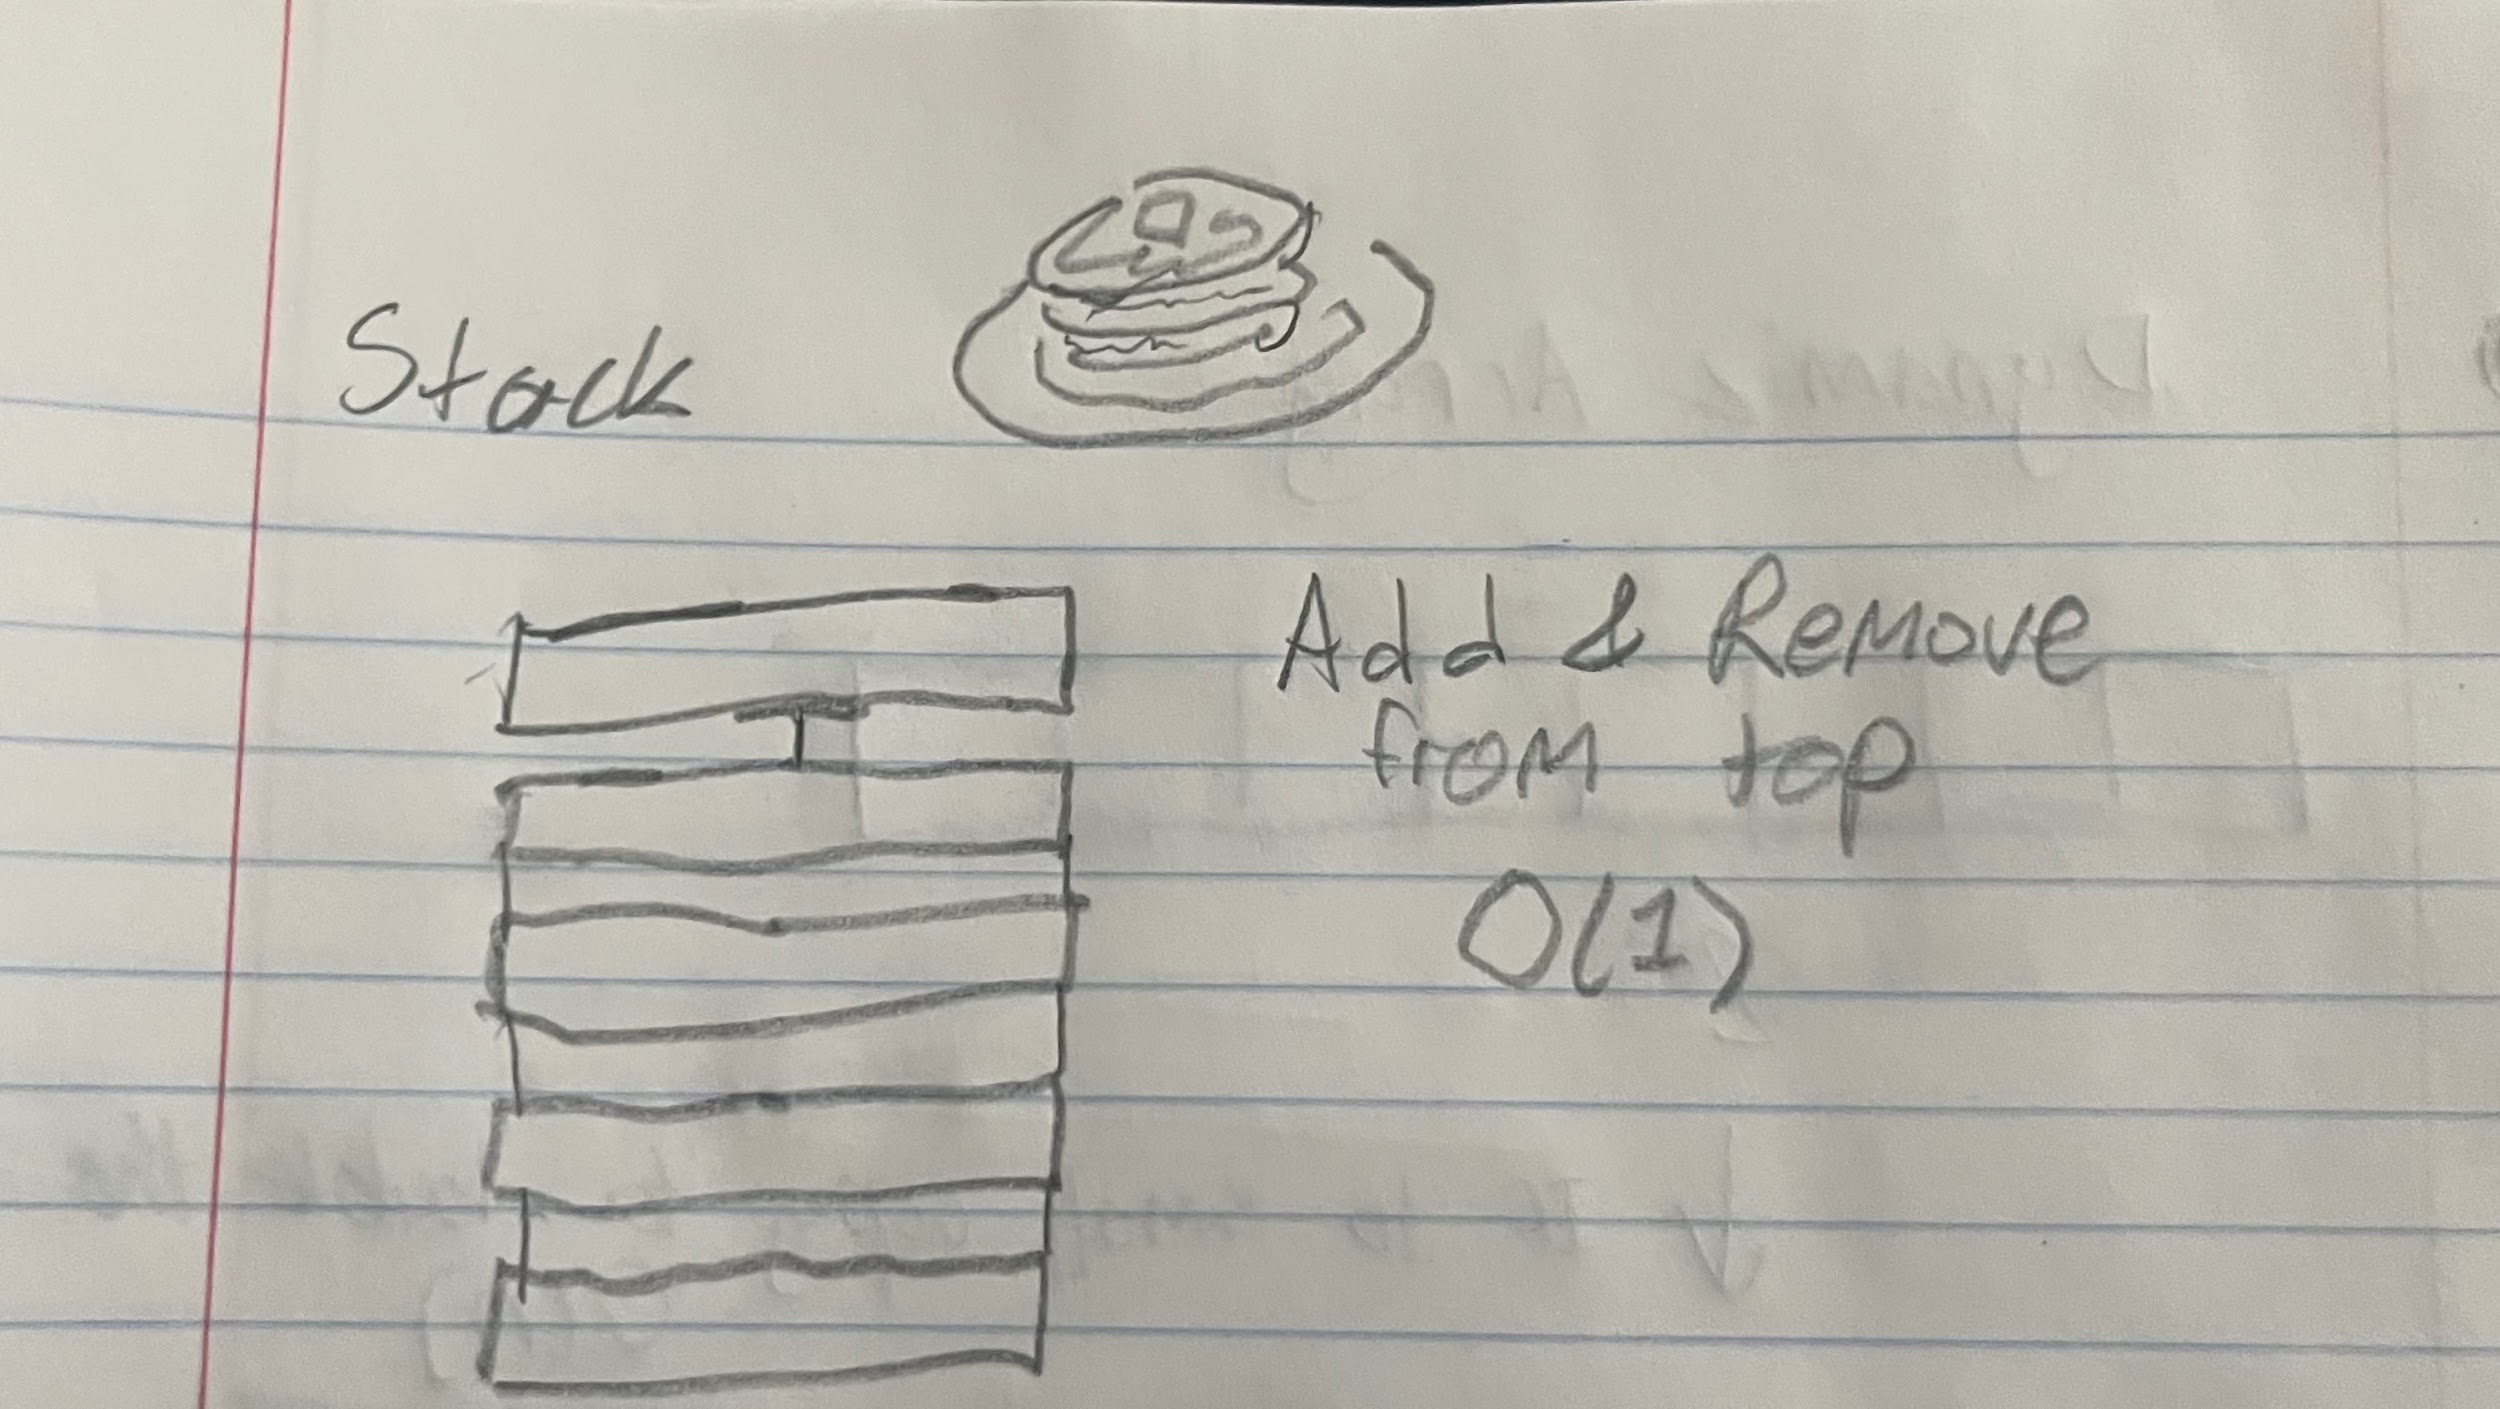 Stack
Add & Remove
from top
O(1)